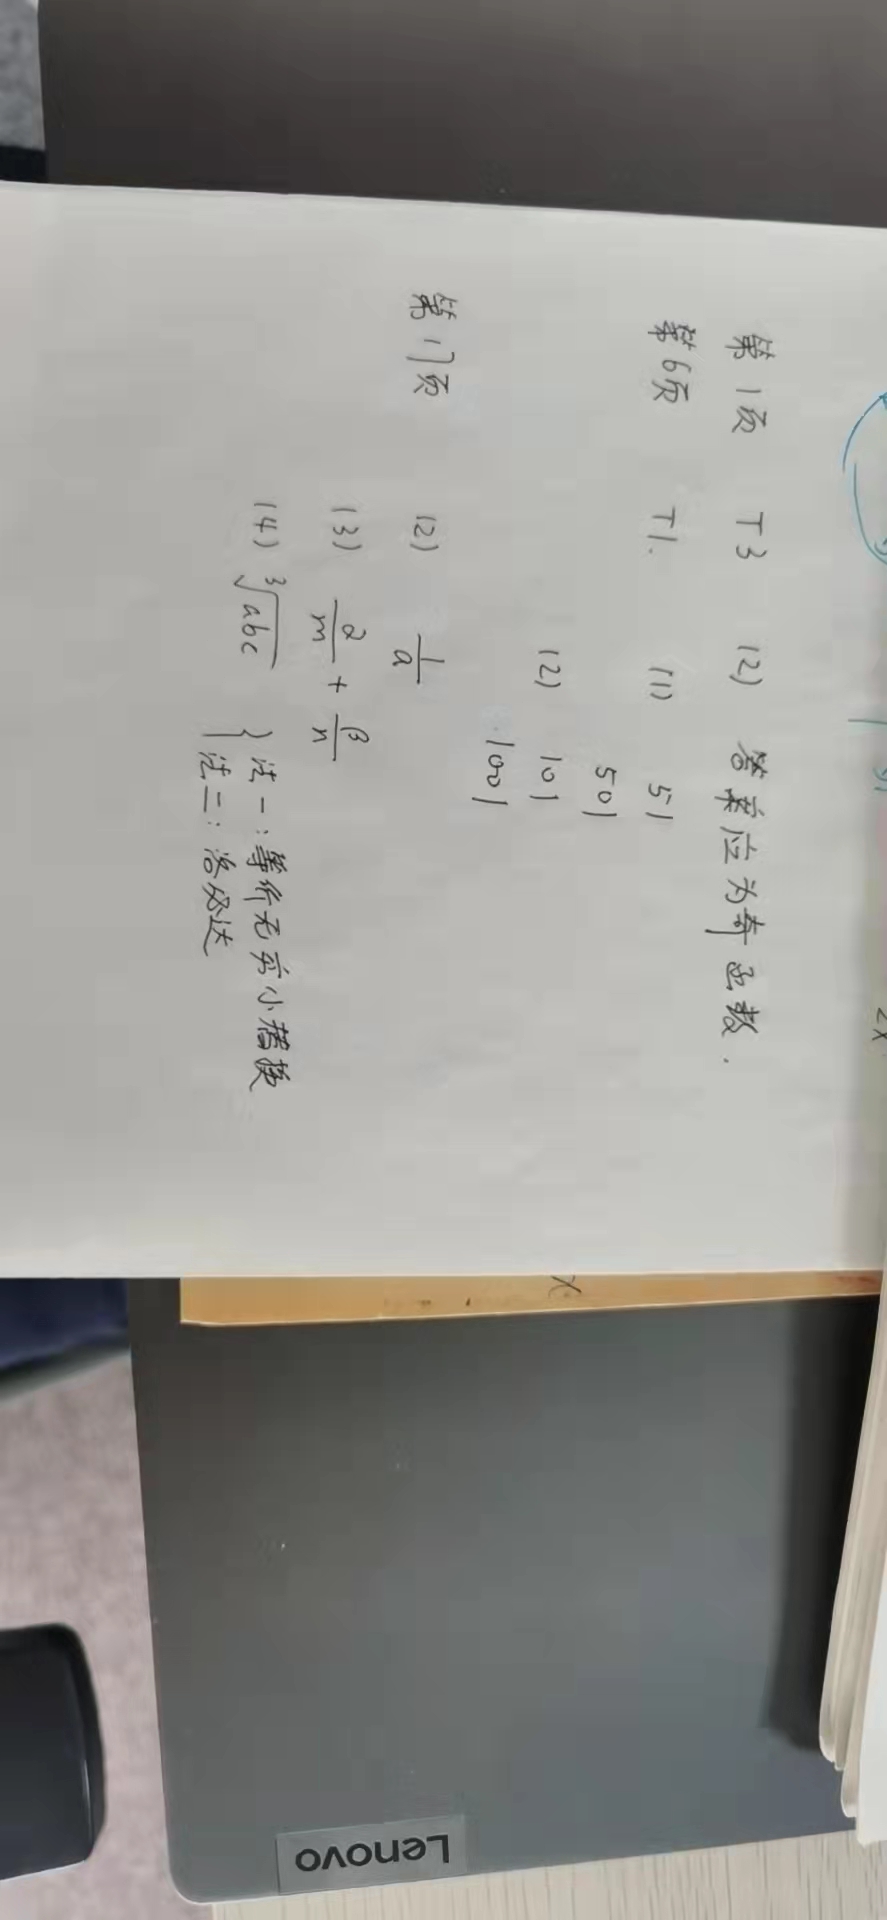 第1页 T3 (2) 答案应为奇函数.
第6页 T1. (1) 51
501
(2) 101
1001
第17页 (2) 1/a
(3) α/m + β/n
(4) ∛abc { 法一:等价无穷小替换
法二:洛必达
2x
x
Lenovo